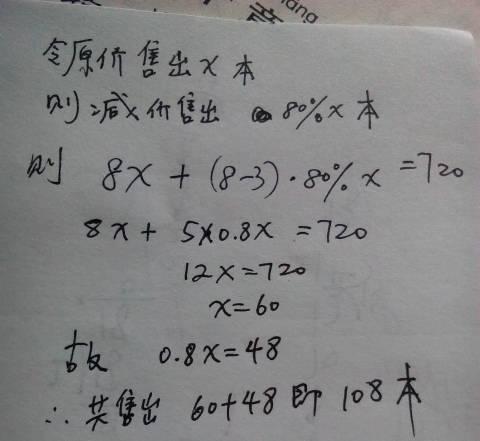 令原价售出x本
则减价售出 80%x本
则 8x + (8-3)·80%x =720
8x + 5×0.8x =720
12x=720
x=60
故 0.8x=48
∴共售出 60+48即108本